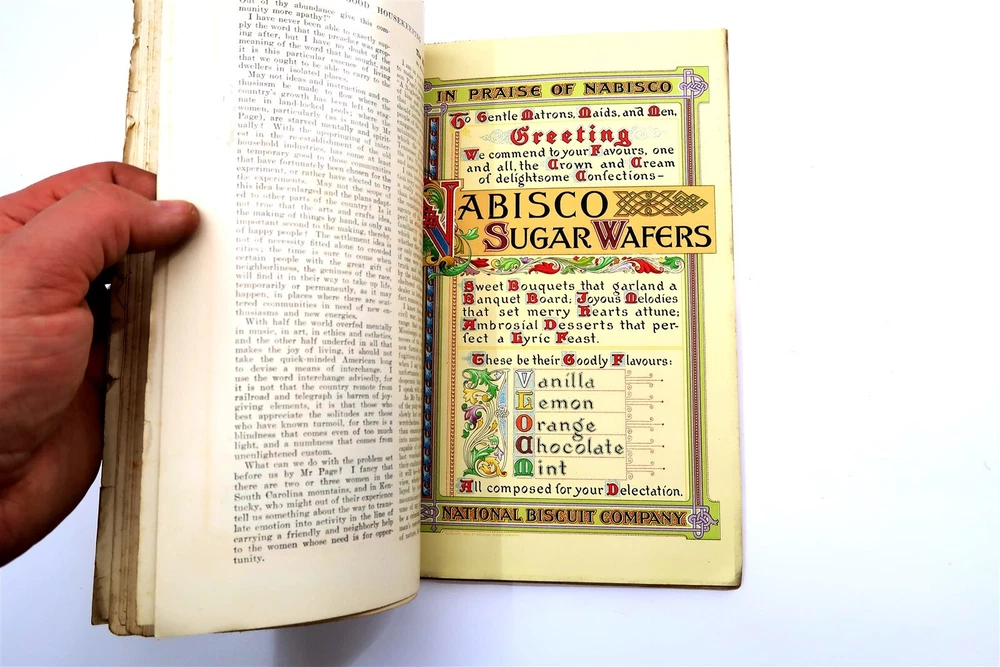 OOD HOUSEKEEPING
Out of thy abundance give this com-
munity more apathy!"
I have never been able to exactly sup-
ply the word that the preacher was grop-
ing after, but I have no doubt of the
meaning of the word that he sought, and
it is this particular essence of living
that we ought to be able to carry to the
dwellers in isolated places.
May not ideas and instruction and en-
thusiasm be made to flow where the
country's growth has been left to stag-
nate in land-locked pools; where the
women, particularly (as is noted by Mr
Page), are starved mentally and spirit-
ually? With the upspringing of inter-
est in the re-establishment of the old
household industries, has come at least
a temporary good to those communities
that have fortunately been chosen for the
experiment, or rather have elected to try
the experiments. May not the scope of
this idea be enlarged and the plans adapt-
ed to other parts of the country? Is it
not true that the arts and crafts idea,
the making of things by hand, is only an
important second to the making, thereby,
of happy people? The settlement idea is
not of necessity fitted alone to crowded
cities; the time is sure to come when
certain people with the great gift of
neighborliness, the geniuses of the race,
will find it in their way to take up life,
temporarily or permanently, as it may
happen, in places where there are scat-
tered communities in need of new en-
thusiasms and new energies.
With half the world overfed mentally
in music, in art, in ethics and esthetics,
and the other half underfed in all that
makes the joy of living, it should not
take the quick-minded American long
to devise a means of interchange. I
use the word interchange advisedly, for
it is not that the country remote from
railroad and telegraph is barren of joy-
giving elements, it is that those who
best appreciate the solitudes are those
who have known turmoil, for there is a
blindness that comes even of too much
light, and a numbness that comes from
unenlightened custom.
What can we do with the problem set
before us by Mr Page? I fancy that
there are two or three women in the
South Carolina mountains, and in Ken-
tucky, who might out of their experience
tell us something about the way to trans-
late emotion into activity in the line of
carrying a friendly and neighborly help
to the women whose need is for oppor-
tunity.
IN PRAISE OF NABISCO
To Gentle Matrons, Maids, and Men,
Greeting
We commend to your Favours, one
and all, the Crown and Cream
of delightsome Confections–
NABISCO
SUGAR WAFERS
Sweet Bouquets that garland a
Banquet Board; Joyous Melodies
that set merry Hearts attune;
Ambrosial Desserts that per-
fect a Lyric Feast.
These be their Goodly Flavours:
Vanilla
Lemon
Orange
Chocolate
Mint
All composed for your Delectation.
NATIONAL BISCUIT COMPANY